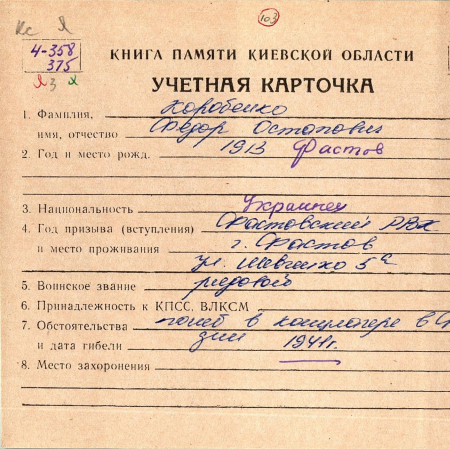 Кс Я
103
4-358
375
23 2
КНИГА ПАМЯТИ КИЕВСКОЙ ОБЛАСТИ
УЧЕТНАЯ КАРТОЧКА
1. Фамилия, Коробейко
имя, отчество Федор Остапович
2. Год и место рожд. 1913 Фастов
3. Национальность Украинец
4. Год призыва (вступления) Фастовский РВК
и место проживания г. Фастов
ул. Шевченко 5а
5. Воинское звание рядовой
6. Принадлежность к КПСС, ВЛКСМ
7. Обстоятельства погиб в концлагере в
и дата гибели 1941г.
8. Место захоронения